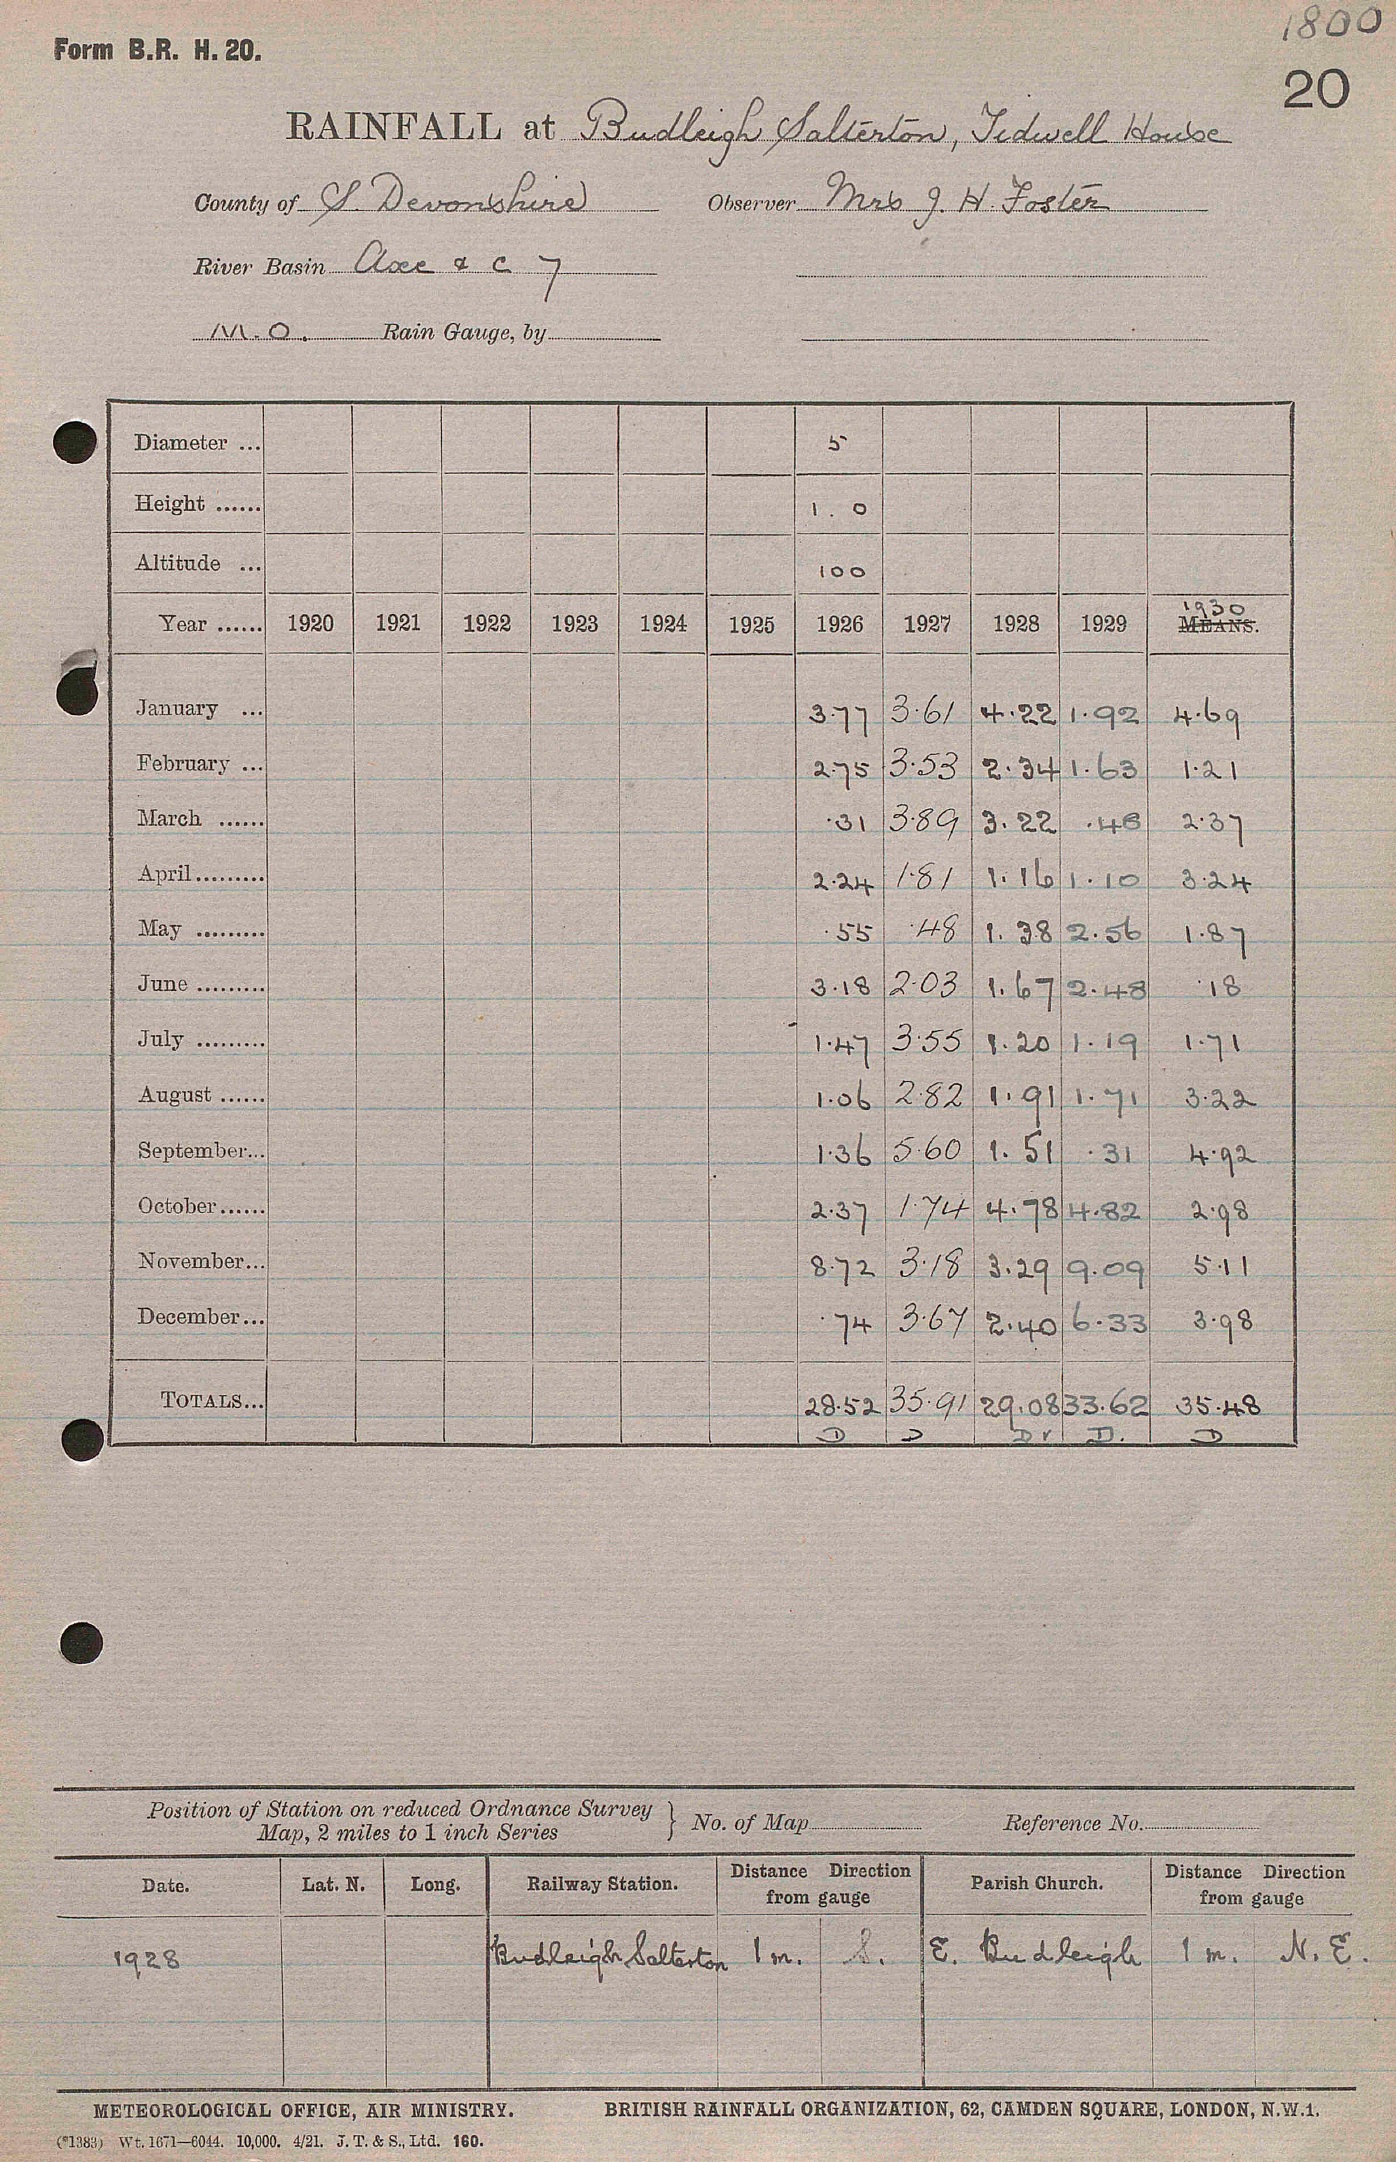 1800
Form B.R. H. 20.
20
RAINFALL at Budleigh Salterton, Tidwell House
County of S. Devonshire Observer Mrs J. H. Foster
River Basin Axe & c 7
M.O. Rain Gauge, by
Diameter ... 5
Height ...... 1.0
Altitude ... 100
Year ...... 1920 1921 1922 1923 1924 1925 1926 1927 1928 1929 1930 MEANS.
January ... 3.77 3.61 4.22 1.92 4.69
February ... 2.75 3.53 2.34 1.63 1.21
March ...... .31 3.89 3.22 .48 2.37
April......... 2.24 1.81 1.16 1.10 3.24
May ......... .55 .48 1.38 2.56 1.87
June ......... 3.18 2.03 1.67 2.48 .18
July ......... 1.47 3.55 1.20 1.19 1.71
August ...... 1.06 2.82 1.91 1.71 3.22
September... 1.36 5.60 1.51 .31 4.92
October...... 2.37 1.74 4.78 4.82 2.98
November... 8.72 3.18 3.29 9.09 5.11
December... .74 3.67 2.40 6.33 3.98
TOTALS... 28.52 35.91 29.08 33.62 35.48
D D D r D. D
Position of Station on reduced Ordnance Survey
Map, 2 miles to 1 inch Series } No. of Map Reference No.
Date. Lat. N. Long. Railway Station. Distance Direction from gauge Parish Church. Distance Direction from gauge
1928 Budleigh Salterton 1 m. S. E. Budleigh 1 m. N. E.
METEOROLOGICAL OFFICE, AIR MINISTRY. BRITISH RAINFALL ORGANIZATION, 62, CAMDEN SQUARE, LONDON, N.W.1.
(*1383) Wt. 1671—6044. 10,000. 4/21. J. T. & S., Ltd. 160.